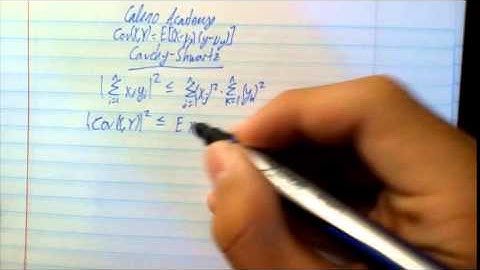 Caleno Academy
Cov(X,Y) = E[(X-μx)(Y-μy)]
Cauchy-Shwartz
|∑ⁿᵢ₌₁ xᵢyᵢ|² ≤ ∑ⁿⱼ₌₁ |xⱼ|² · ∑ⁿₖ₌₁ |yₖ|²
|Cov(X,Y)|² ≤ E